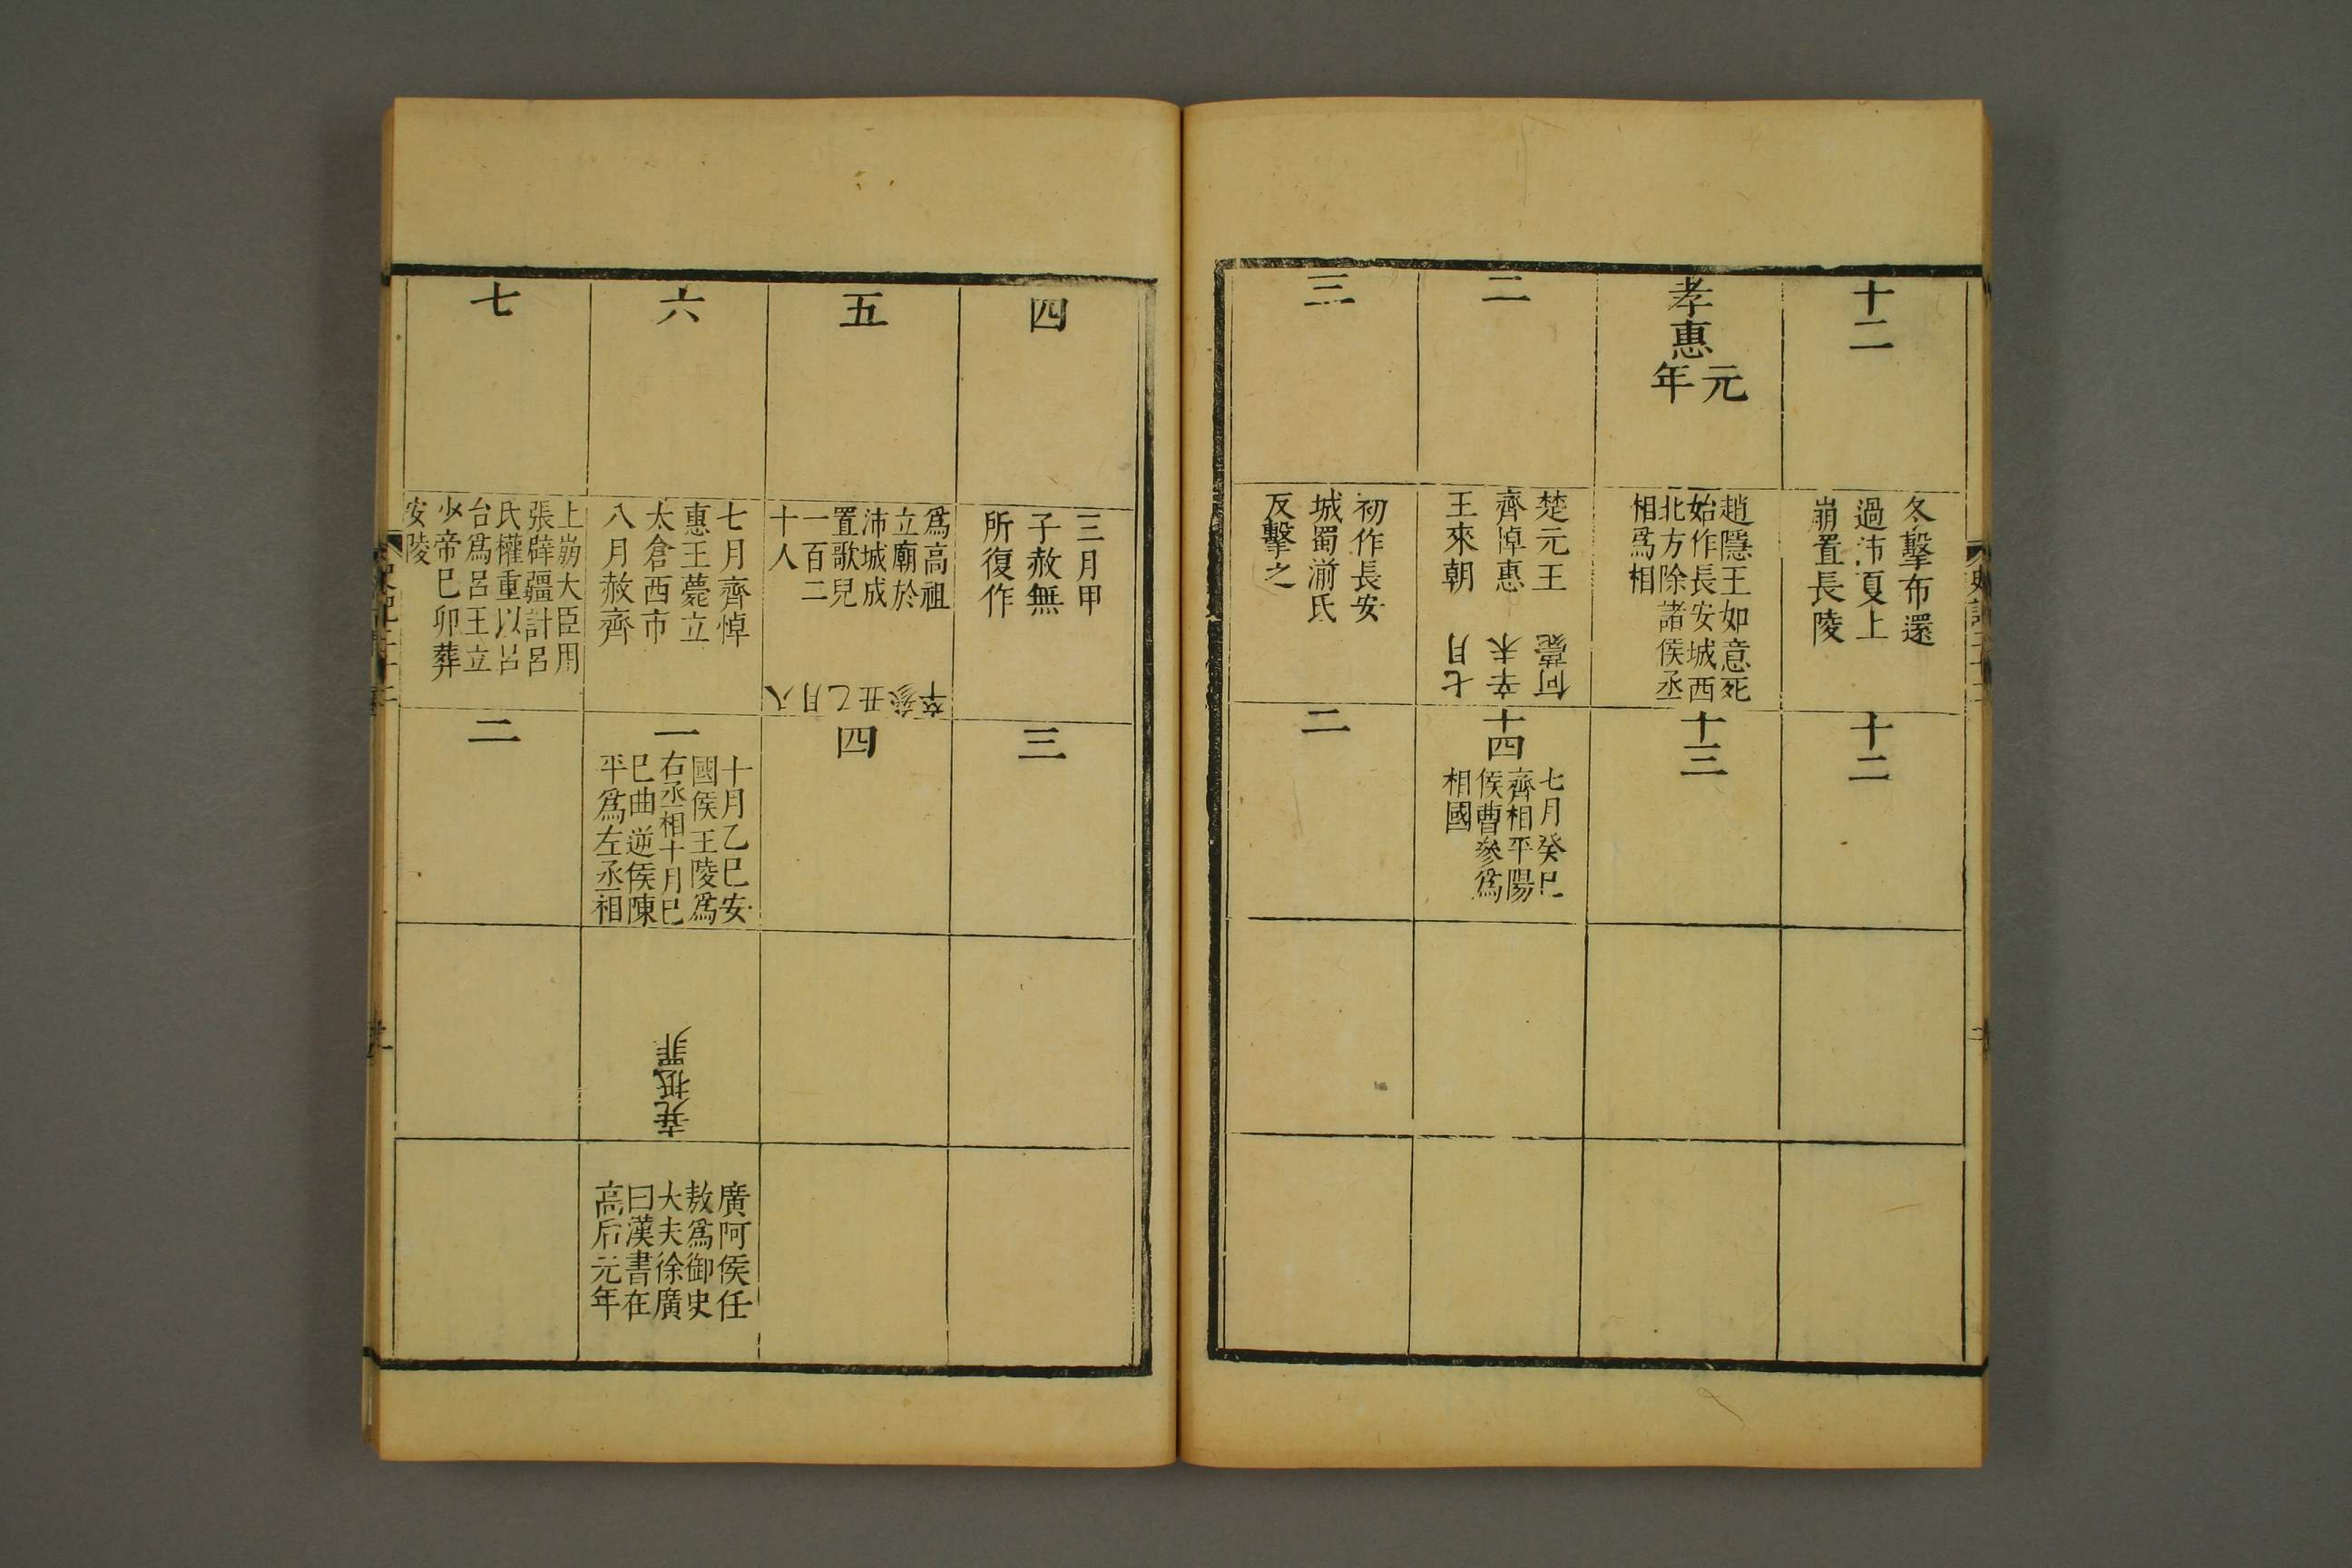 十二
冬擊布還
過沛夏上
崩置長陵
十二
孝惠
元
年
趙隱王如意死
始作長安城西
北方除諸侯丞
相爲相
十三
二
楚元王
齊悼惠
王來朝
七月
辛未
何薨
十四
七月癸巳
齊相平陽
侯曹參爲
相國
三
初作長安
城蜀湔氏
反擊之
二
四
三月甲
子赦無
所復作
三
五
爲高祖
立廟於
沛城成
置歌兒
一百二
十人
八月乙丑參卒
四
六
七月齊悼
惠王薨立
太倉西市
八月赦齊
一
十月乙巳安
國侯王陵爲
右丞相十月巳
巳曲逆侯陳
平爲左丞相
堯抵罪
廣阿侯任
敖爲御史
大夫徐廣
曰漢書在
高后元年
七
上崩大臣用
張辟疆計呂
氏權重以呂
台爲呂王立
少帝巳卯葬
安陵
二